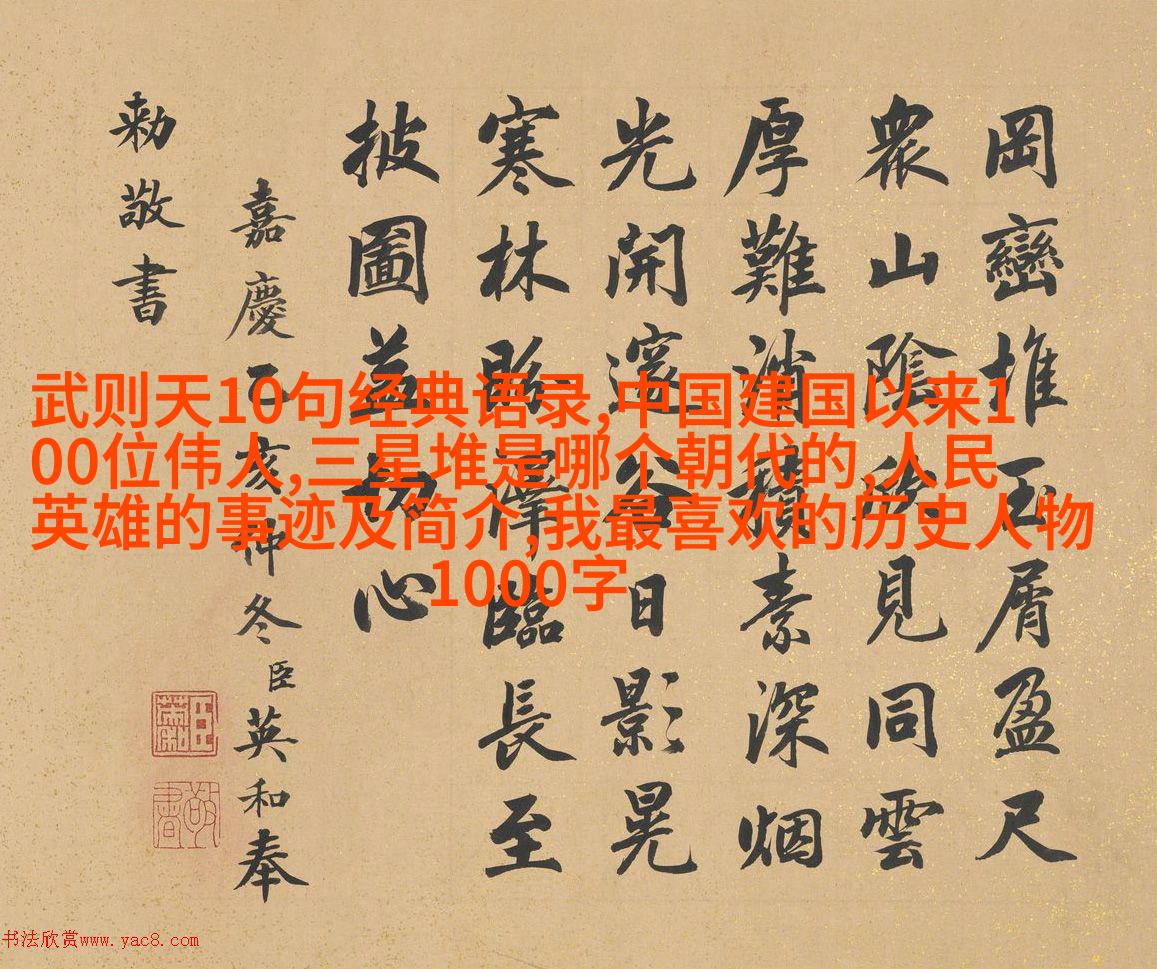 岡巒堆玉屑盈尺
衆山陰欣見同雲
厚難消積素深烟
光開邃谷日影晃
寒林澤臨長至
披圖益切心
嘉慶乙亥仲冬臣英和奉
勅敬書
敬書
武则天10句经典语录,中国建国以来1
00位伟人,三星堆是哪个朝代的,人民
英雄的事迹及简介,我最喜欢的历史人物
1000字
书法欣赏www.yac8.com